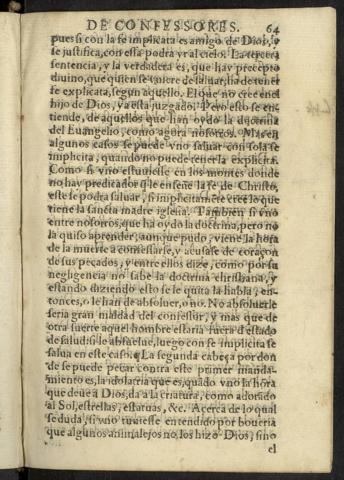 DE CONFESSORES. 64
pues si con la fe implicata es amigo de Dios, y
se justifica, con essa podra yr al cielo. La tercera
sentencia, y la verdadera es, que hay precepto
diuino, que quien se quiere de saluar, ha de tener
fe explicata, segun aquello. El que no cree en el
hijo de Dios, ya esta juzgado. Pero esto se en-
tiende, de aquellos que han oydo la doctrina
del Euangelio, como agora nosotros. Mas en
algunos casos se puede vno saluar con sola fe
implicita, quando no puede tener la explicita.
Como si vno estuuiesse en los montes donde
no hay predicador q̃ le enseñe la fe de Christo,
este se podra saluar, si implicitamẽte cree lo que
tiene la sancta madre iglesia. Tambien si vno
entre nosotros, que ha oydo la doctrina, pero no
la quiso aprender, aunque pudo, viene la hora
de la muerte a confessarse, y acusase de coraçon
de sus pecados, y entre ellos dize, como por su
negligencia no sabe la doctrina christiana, y
estando diziendo esto se le quita la habla, en-
tonces, o le han de absoluer, o no. No absoluerle
seria gran maldad del confessor, y mas que de
otra suerte aquel hombre estaria fuera d'estado
de salud: si le absuelue, luego con fe implicita se
salua en este caso. La segunda cabeça por don
de se puede pecar contra este primer manda-
miento es, la idolatria que es, quãdo vno la hõra
que deue à Dios, da a la criatura, como adorado
al Sol, estrellas, estatuas, &c. Acerca de lo qual
se duda, si vno tuuiesse entendido por boueria
que algunos animalejos no los hizo Dios, sino
el